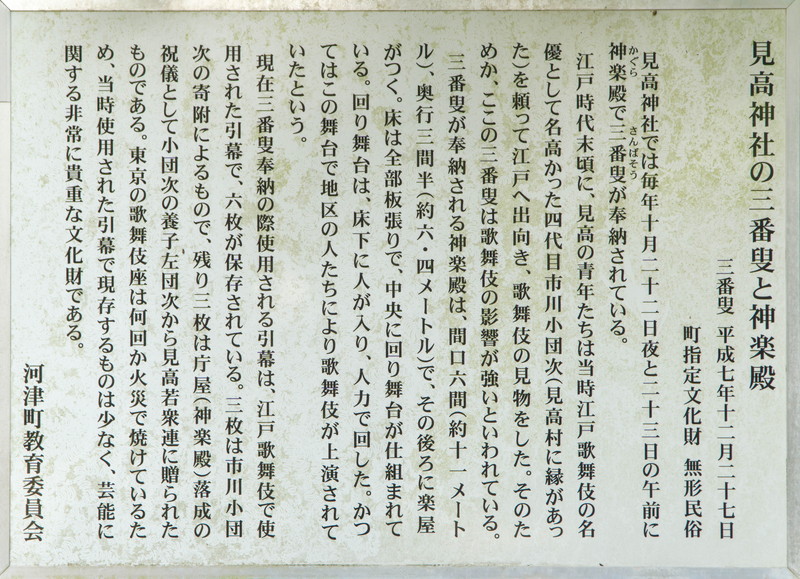 見高神社の三番叟と神楽殿
三番叟 平成七年十二月二十七日
町指定文化財 無形民俗
見高神社では毎年十月二十二日夜と二十三日の午前に
神楽殿で三番叟が奉納されている。
かぐら
さんばそう
江戸時代末頃に、見高の青年たちは当時江戸歌舞伎の名
優として名高かった四代目市川小団次(見高村に縁があっ
た)を頼って江戸へ出向き、歌舞伎の見物をした。そのた
めか、ここの三番叟は歌舞伎の影響が強いといわれている。
三番叟が奉納される神楽殿は、間口六間(約十一メート
ル)、奥行三間半(約六・四メートル)で、その後ろに楽屋
がつく。床は全部板張りで、中央に回り舞台が仕組まれて
いる。回り舞台は、床下に人が入り、人力で回した。かつ
てはこの舞台で地区の人たちにより歌舞伎が上演されて
いたという。
現在三番叟奉納の際使用される引幕は、江戸歌舞伎で使
用された引幕で、六枚が保存されている。三枚は市川小団
次の寄附によるもので、残り三枚は庁屋(神楽殿)落成の
祝儀として小団次の養子左団次から見高若衆連に贈られた
ものである。東京の歌舞伎座は何回か火災で焼けているた
め、当時使用された引幕で現存するものは少なく、芸能に
関する非常に貴重な文化財である。
河津町教育委員会